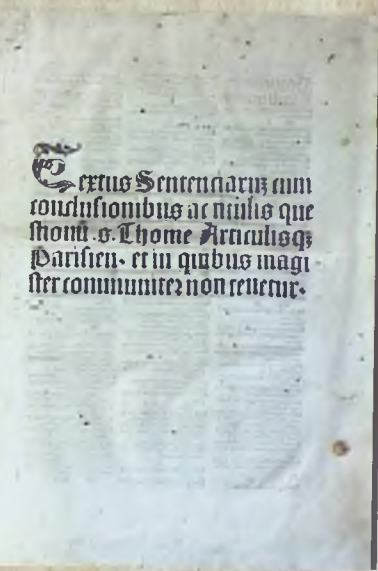 Textus Sentenciaruꝫ cum
conclusionibus ac titulis que
stionū .s. Thome Articulisqꝫ
Parisieñ. et in quibus magi
ster communiter non tenetur.